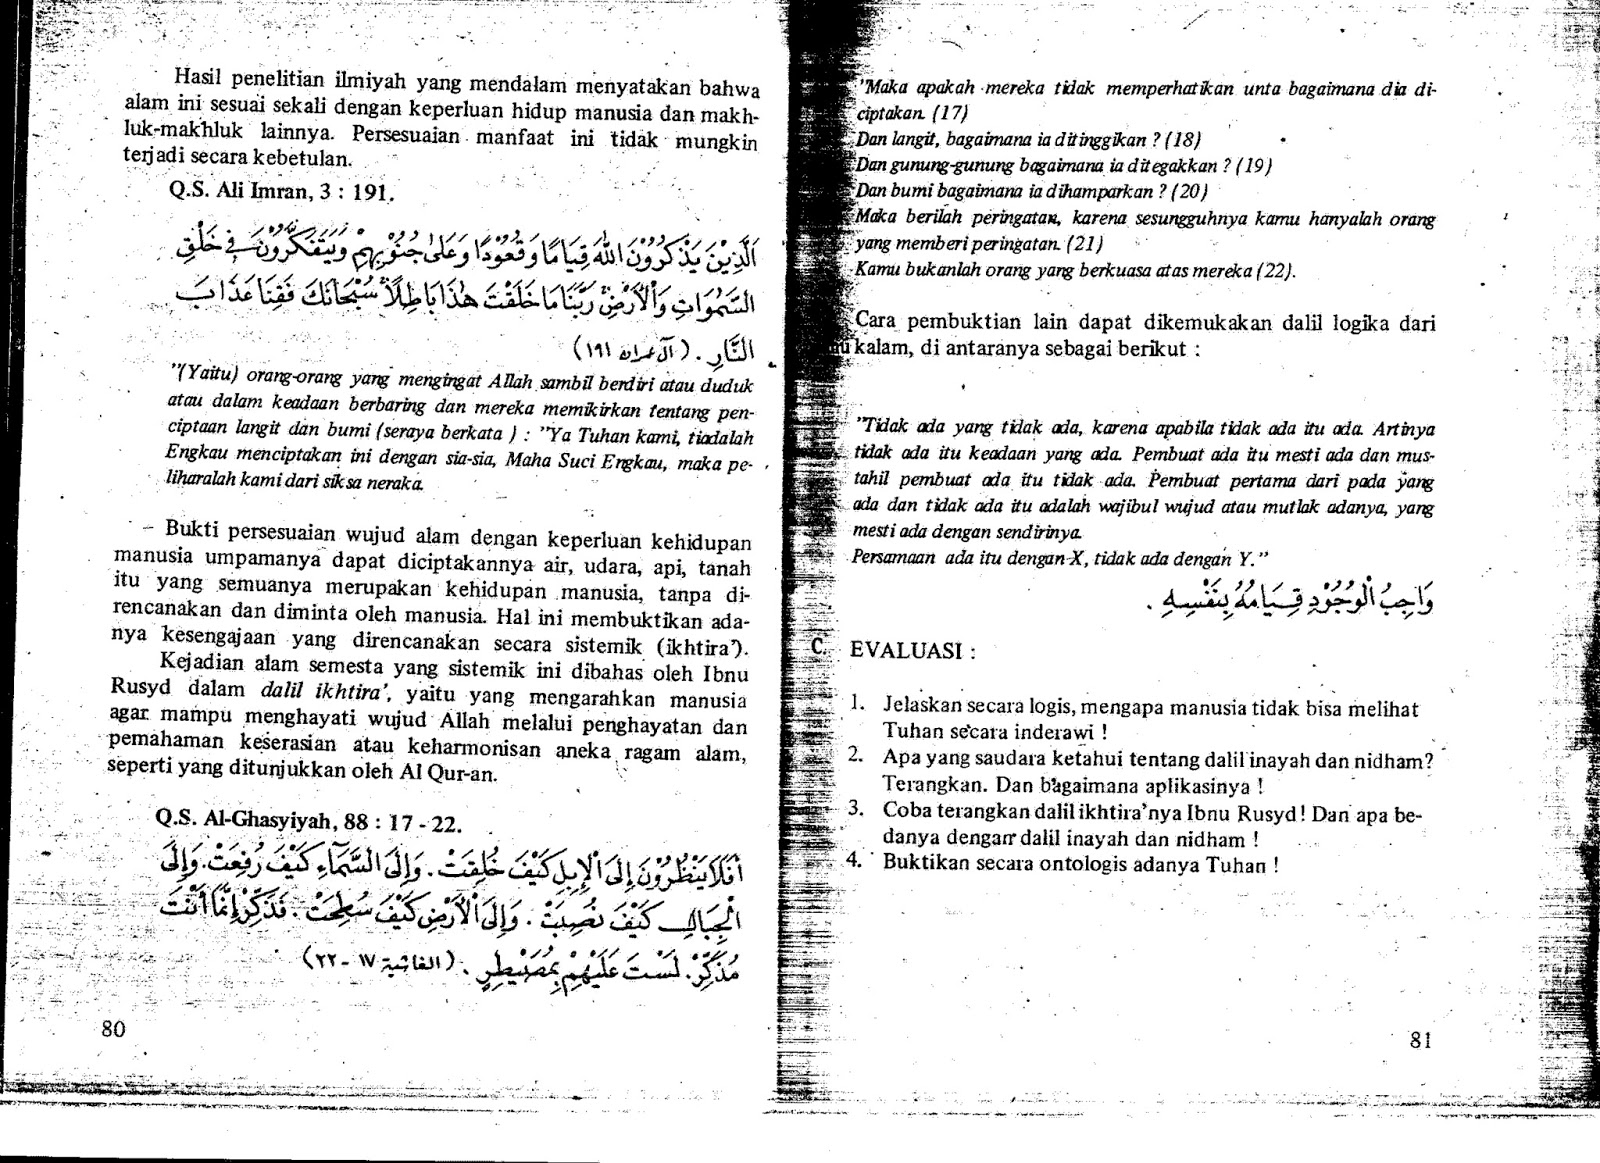 Hasil penelitian ilmiyah yang mendalam menyatakan bahwa
alam ini sesuai sekali dengan keperluan hidup manusia dan makh-
luk-makhluk lainnya. Persesuaian manfaat ini tidak mungkin
terjadi secara kebetulan.
Q.S. Ali Imran, 3 : 191.
الَّذِيْنَ يَذْكُرُوْنَ اللهَ قِيَامًا وَقُعُوْدًا وَعَلٰى جُنُوْبِهِمْ وَيَتَفَكَّرُوْنَ فِيْ خَلْقِ
السَّمٰوَاتِ وَاْلاَرْضِ رَبَّنَا مَا خَلَقْتَ هٰذَا بَاطِلًا سُبْحَانَكَ فَقِنَا عَذَابَ
النَّارِ . (آل عمران ١٩١)
"(Yaitu) orang-orang yang mengingat Allah sambil berdiri atau duduk
atau dalam keadaan berbaring dan mereka memikirkan tentang pen-
ciptaan langit dan bumi (seraya berkata ) : "Ya Tuhan kami, tiadalah
Engkau menciptakan ini dengan sia-sia, Maha Suci Engkau, maka pe-
liharalah kami dari siksa neraka.
– Bukti persesuaian wujud alam dengan keperluan kehidupan
manusia umpamanya dapat diciptakannya air, udara, api, tanah
itu yang semuanya merupakan kehidupan manusia, tanpa di-
rencanakan dan diminta oleh manusia. Hal ini membuktikan ada-
nya kesengajaan yang direncanakan secara sistemik (ikhtira').
Kejadian alam semesta yang sistemik ini dibahas oleh Ibnu
Rusyd dalam dalil ikhtira', yaitu yang mengarahkan manusia
agar mampu menghayati wujud Allah melalui penghayatan dan
pemahaman keserasian atau keharmonisan aneka ragam alam,
seperti yang ditunjukkan oleh Al Qur-an.
Q.S. Al-Ghasyiyah, 88 : 17 - 22.
اَفَلاَ يَنْظُرُوْنَ اِلَى اْلاِبِلِ كَيْفَ خُلِقَتْ . وَاِلَى السَّمَآءِ كَيْفَ رُفِعَتْ . وَاِلَى
الْجِبَالِ كَيْفَ نُصِبَتْ . وَاِلَى اْلاَرْضِ كَيْفَ سُطِحَتْ . فَذَكِّرْ اِنَّمَا اَنْتَ
مُذَكِّرٌ . لَسْتَ عَلَيْهِمْ بِمُصَيْطِرٍ . (الغاشية ١٧ - ٢٢)
80
"Maka apakah mereka tidak memperhatikan unta bagaimana dia di-
ciptakan. (17)
Dan langit, bagaimana ia ditinggikan ? (18)
Dan gunung-gunung bagaimana ia ditegakkan ? (19)
Dan bumi bagaimana ia dihamparkan ? (20)
Maka berilah peringatan, karena sesungguhnya kamu hanyalah orang
yang memberi peringatan. (21)
Kamu bukanlah orang yang berkuasa atas mereka (22).
Cara pembuktian lain dapat dikemukakan dalil logika dari
kalam, di antaranya sebagai berikut :
"Tidak ada yang tidak ada, karena apabila tidak ada itu ada. Artinya
tidak ada itu keadaan yang ada. Pembuat ada itu mesti ada dan mus-
tahil pembuat ada itu tidak ada. Pembuat pertama dari pada yang
ada dan tidak ada itu adalah wajibul wujud atau mutlak adanya, yang
mesti ada dengan sendirinya.
Persamaan ada itu dengan X, tidak ada dengan Y."
وَاجِبُ الْوُجُوْدِ قِيَامُهُ بِنَفْسِهِ .
C. EVALUASI :
1. Jelaskan secara logis, mengapa manusia tidak bisa melihat
Tuhan secara inderawi !
2. Apa yang saudara ketahui tentang dalil inayah dan nidham?
Terangkan. Dan bagaimana aplikasinya !
3. Coba terangkan dalil ikhtira'nya Ibnu Rusyd! Dan apa be-
danya dengan dalil inayah dan nidham !
4. Buktikan secara ontologis adanya Tuhan !
81